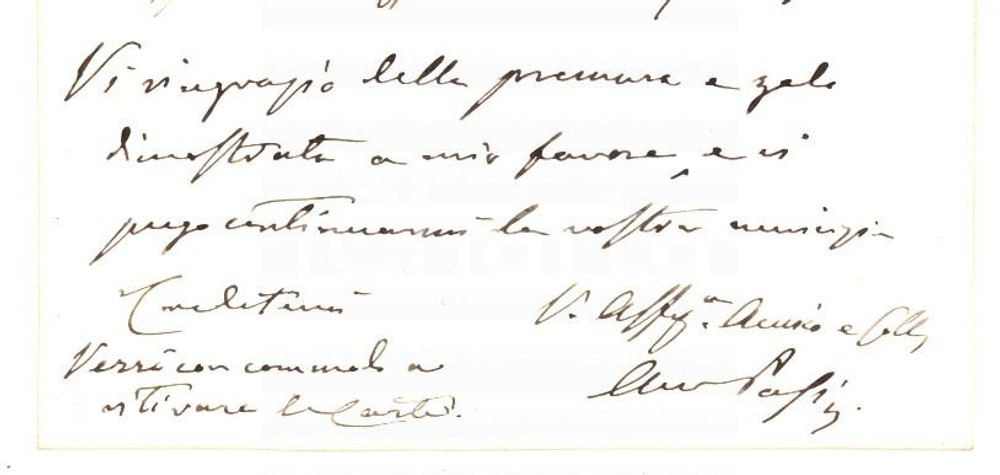 Vi ringrazio della premura e zelo
dimostrata a mio favore, e vi
prego continuarmi la vostra amicizia
Credetemi
V. Aff.mo Amico e Coll.
Verrò con commodo a
ritirare le Carte.